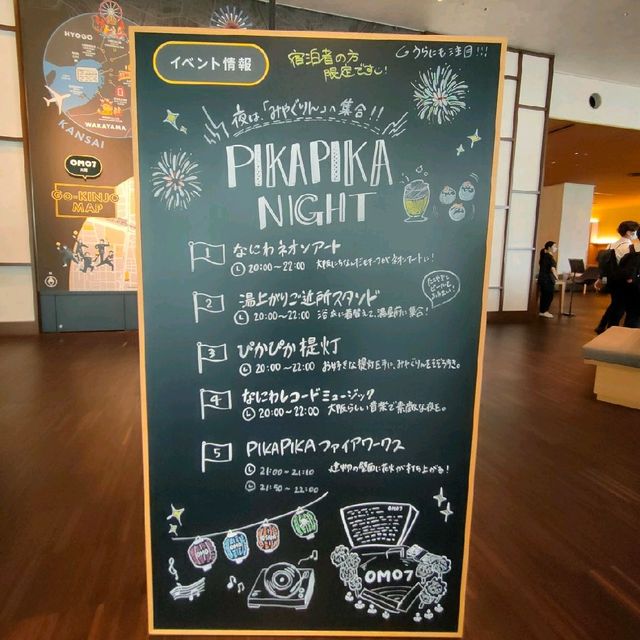 イベント情報
宿泊者の方
限定です!
うらにも注目!!!
夜は、「みやぐりん」へ集合!!
PIKAPIKA
NIGHT
1 なにわネオンアート
20:00~22:00
2 湯上がりご近所スタンド
20:00~22:00 浴衣に着替えて、湯屋前に集合!
3 ぴかぴか提灯
20:00~22:00 お好きな提灯を手に、みやぐりんをそぞろ歩き。
4 なにわレコードミュージック
20:00~22:00 大阪らしい音楽で素敵な夜を。
5 PIKAPIKAファイアワークス
21:00~21:10 建物の壁面に花火が打ち上がる!
21:50~22:00
OMO7
OMO7
HYOGO
WAKAYAMA
KANSAI
OMO7
大阪
Go-KINJO
MAP